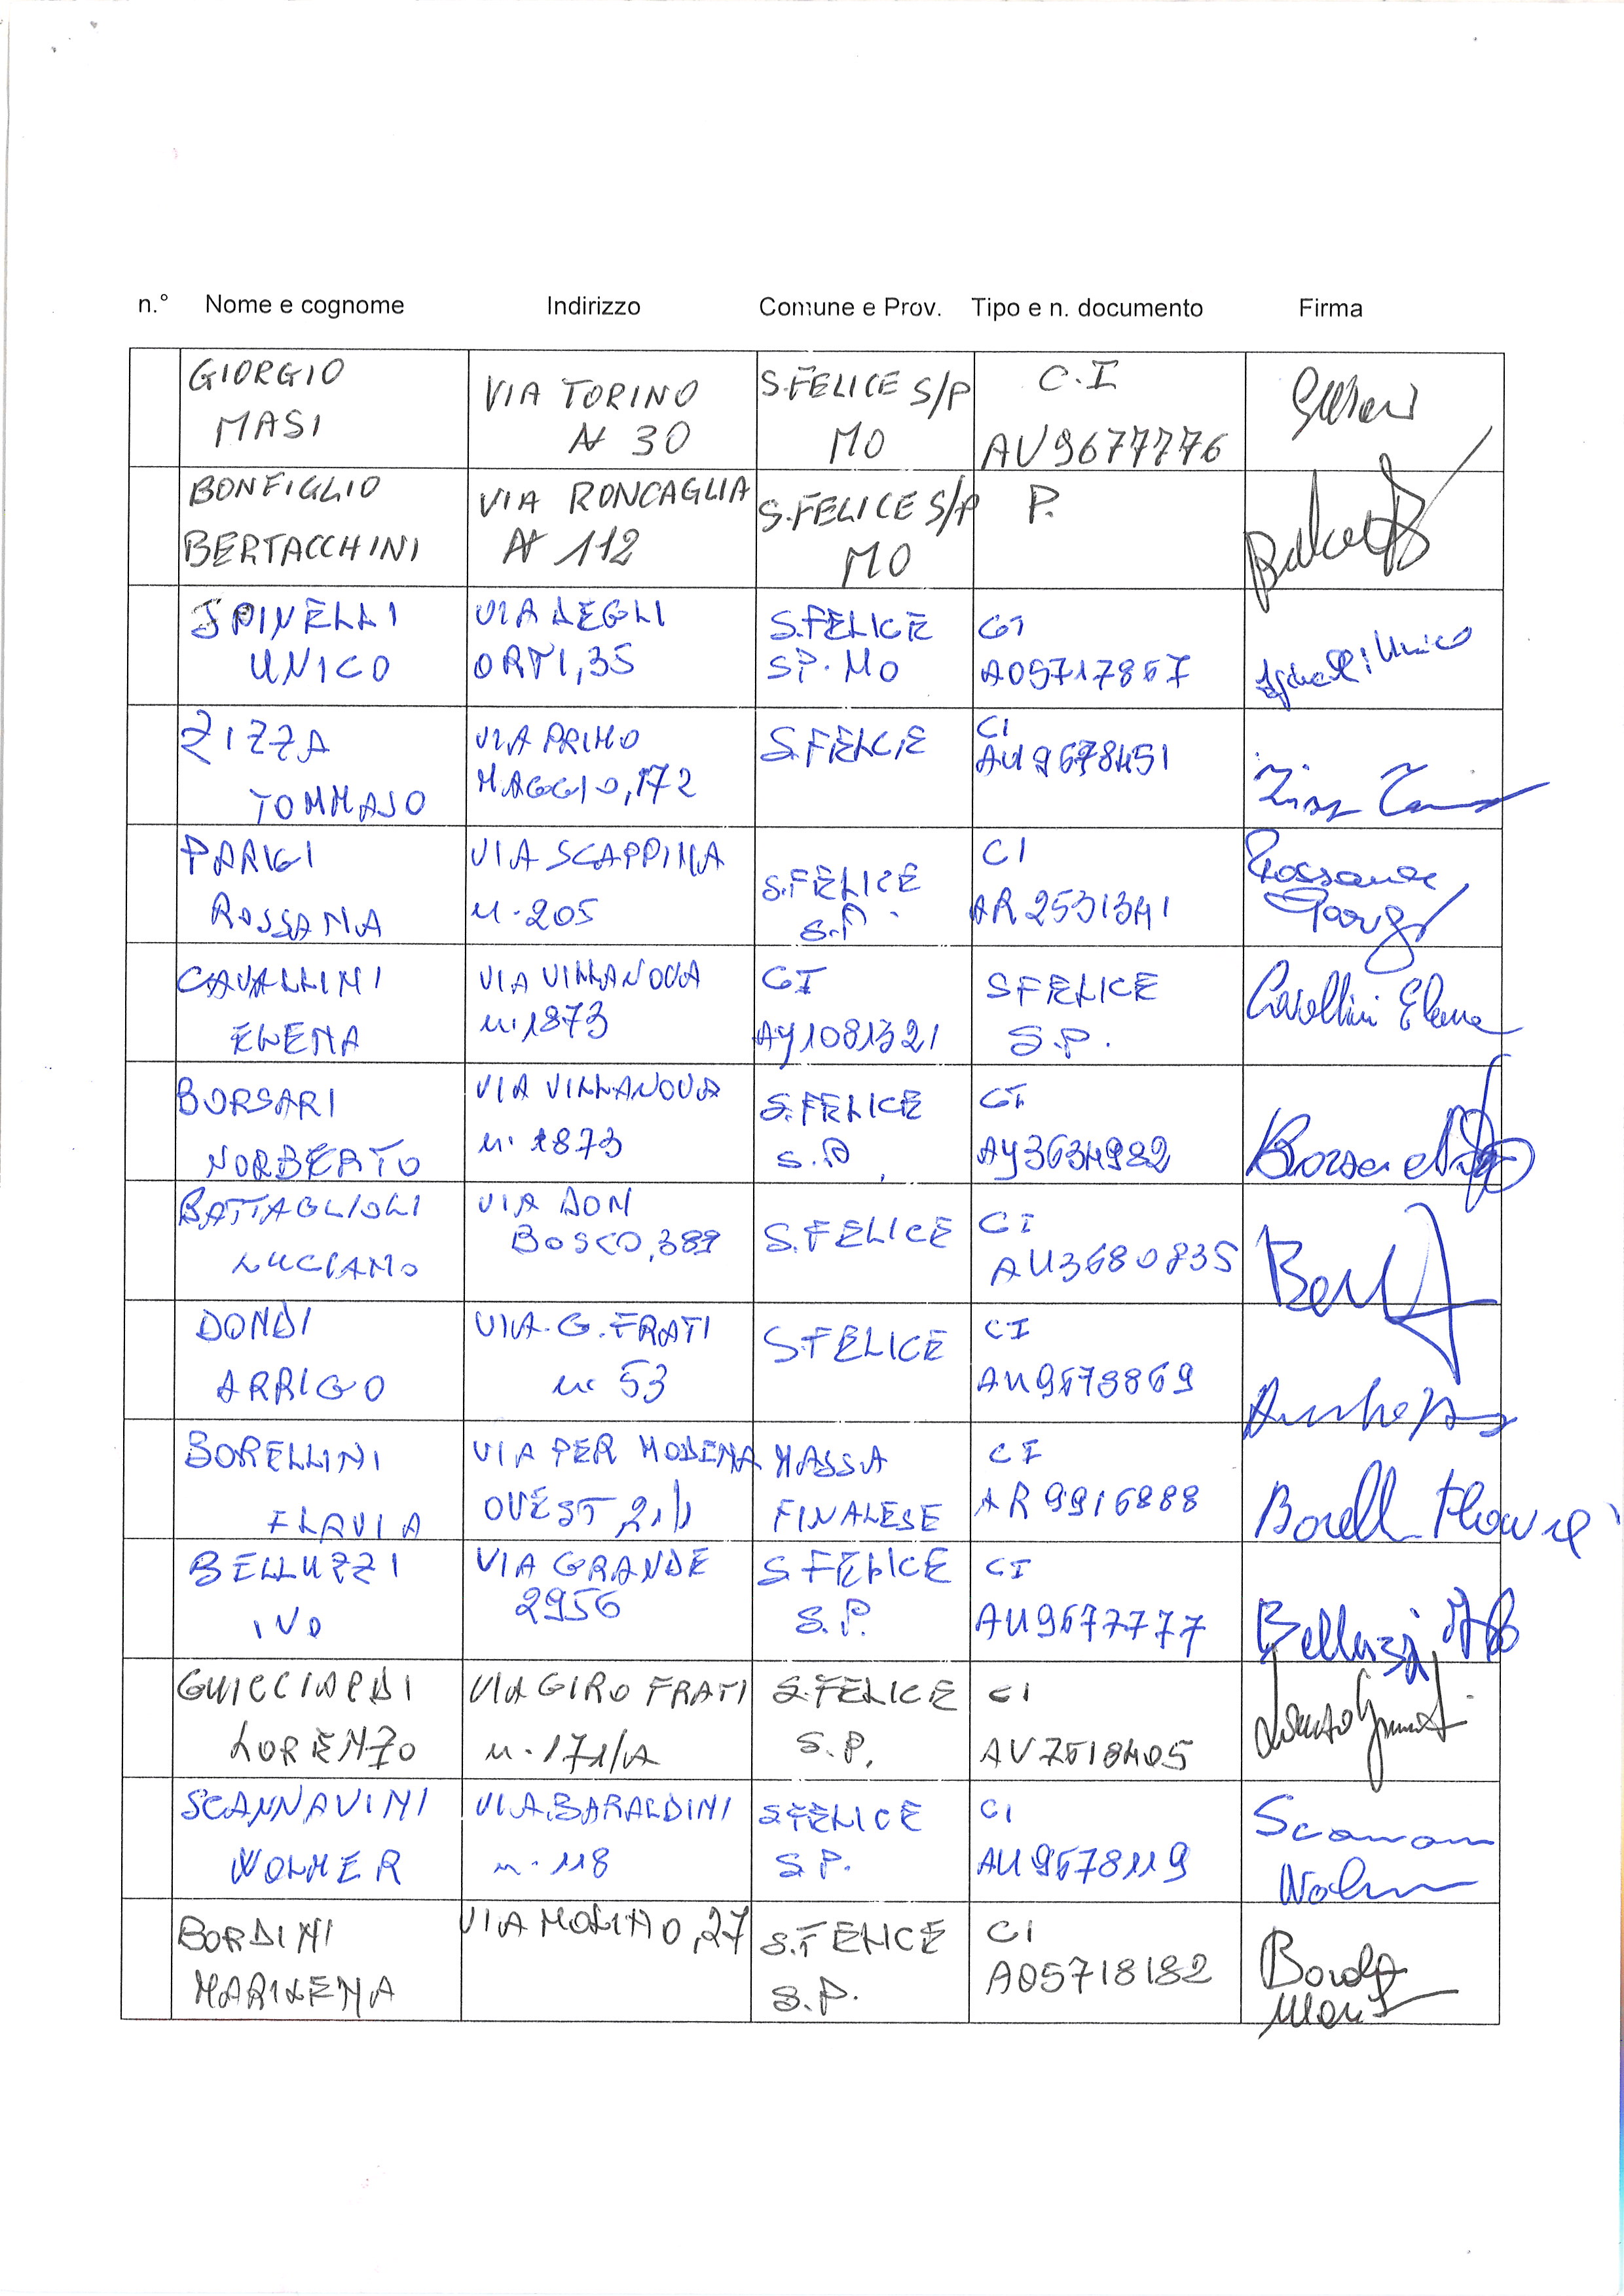 n.° Nome e cognome Indirizzo Comune e Prov. Tipo e n. documento Firma
GIORGIO VIA TORINO S.FELICE S/P C.I
MASI N 30 MO AV9677776
BONFIGLIO VIA RONCAGLIA S.FELICE S/P P.
BERTACCHINI N 112 MO
SPINELLI VIA DEGLI S.FELICE CI
UNICO ORTI,35 SP. MO AO5717867 Spinelli Unico
ZIZZA VIA PRIMO S.FELCIE CI
TOMMASO MAGGIO,172 AU9678451
PARIGI VIA SCAPPINA S.FELICE CI Rossana
ROSSANA n. 205 S.P AR2531341 Parigi
CAVALLINI VIA VILLANOVA CI SFELICE Cavallini Elena
ELENA n. 1873 AY1081321 S.P.
BORSARI VIA VILLANOVA S.FELICE CI
NORBERTO n. 1873 S.P. AY3634982
BATTAGLIOLI VIA DON S.FELICE CI
LUCIANO BOSCO,389 AU3680835
DONDI VIA G. FRATI S.FELICE CI
ARRIGO n. 53 AU9678869
BORELLINI VIA PER MODENA MASSA CI
FLAVIA OVEST FINALESE AR9916888
BELLUZZI VIA GRANDE S FELICE CI
IVO 2956 S.P. AU9677777 Belluzzi
GUICCIARDI VIA GIRO FRATI S.FELICE CI
LORENZO n. 171/A S.P. AV7518405
SCANNAVINI VIA.BARALDINI S.FELICE CI
WOLMER n. 118 S.P. AU9678119
BORDINI VIA MOLINO,27 S.FELICE CI
MARILENA S.P. AO5718182